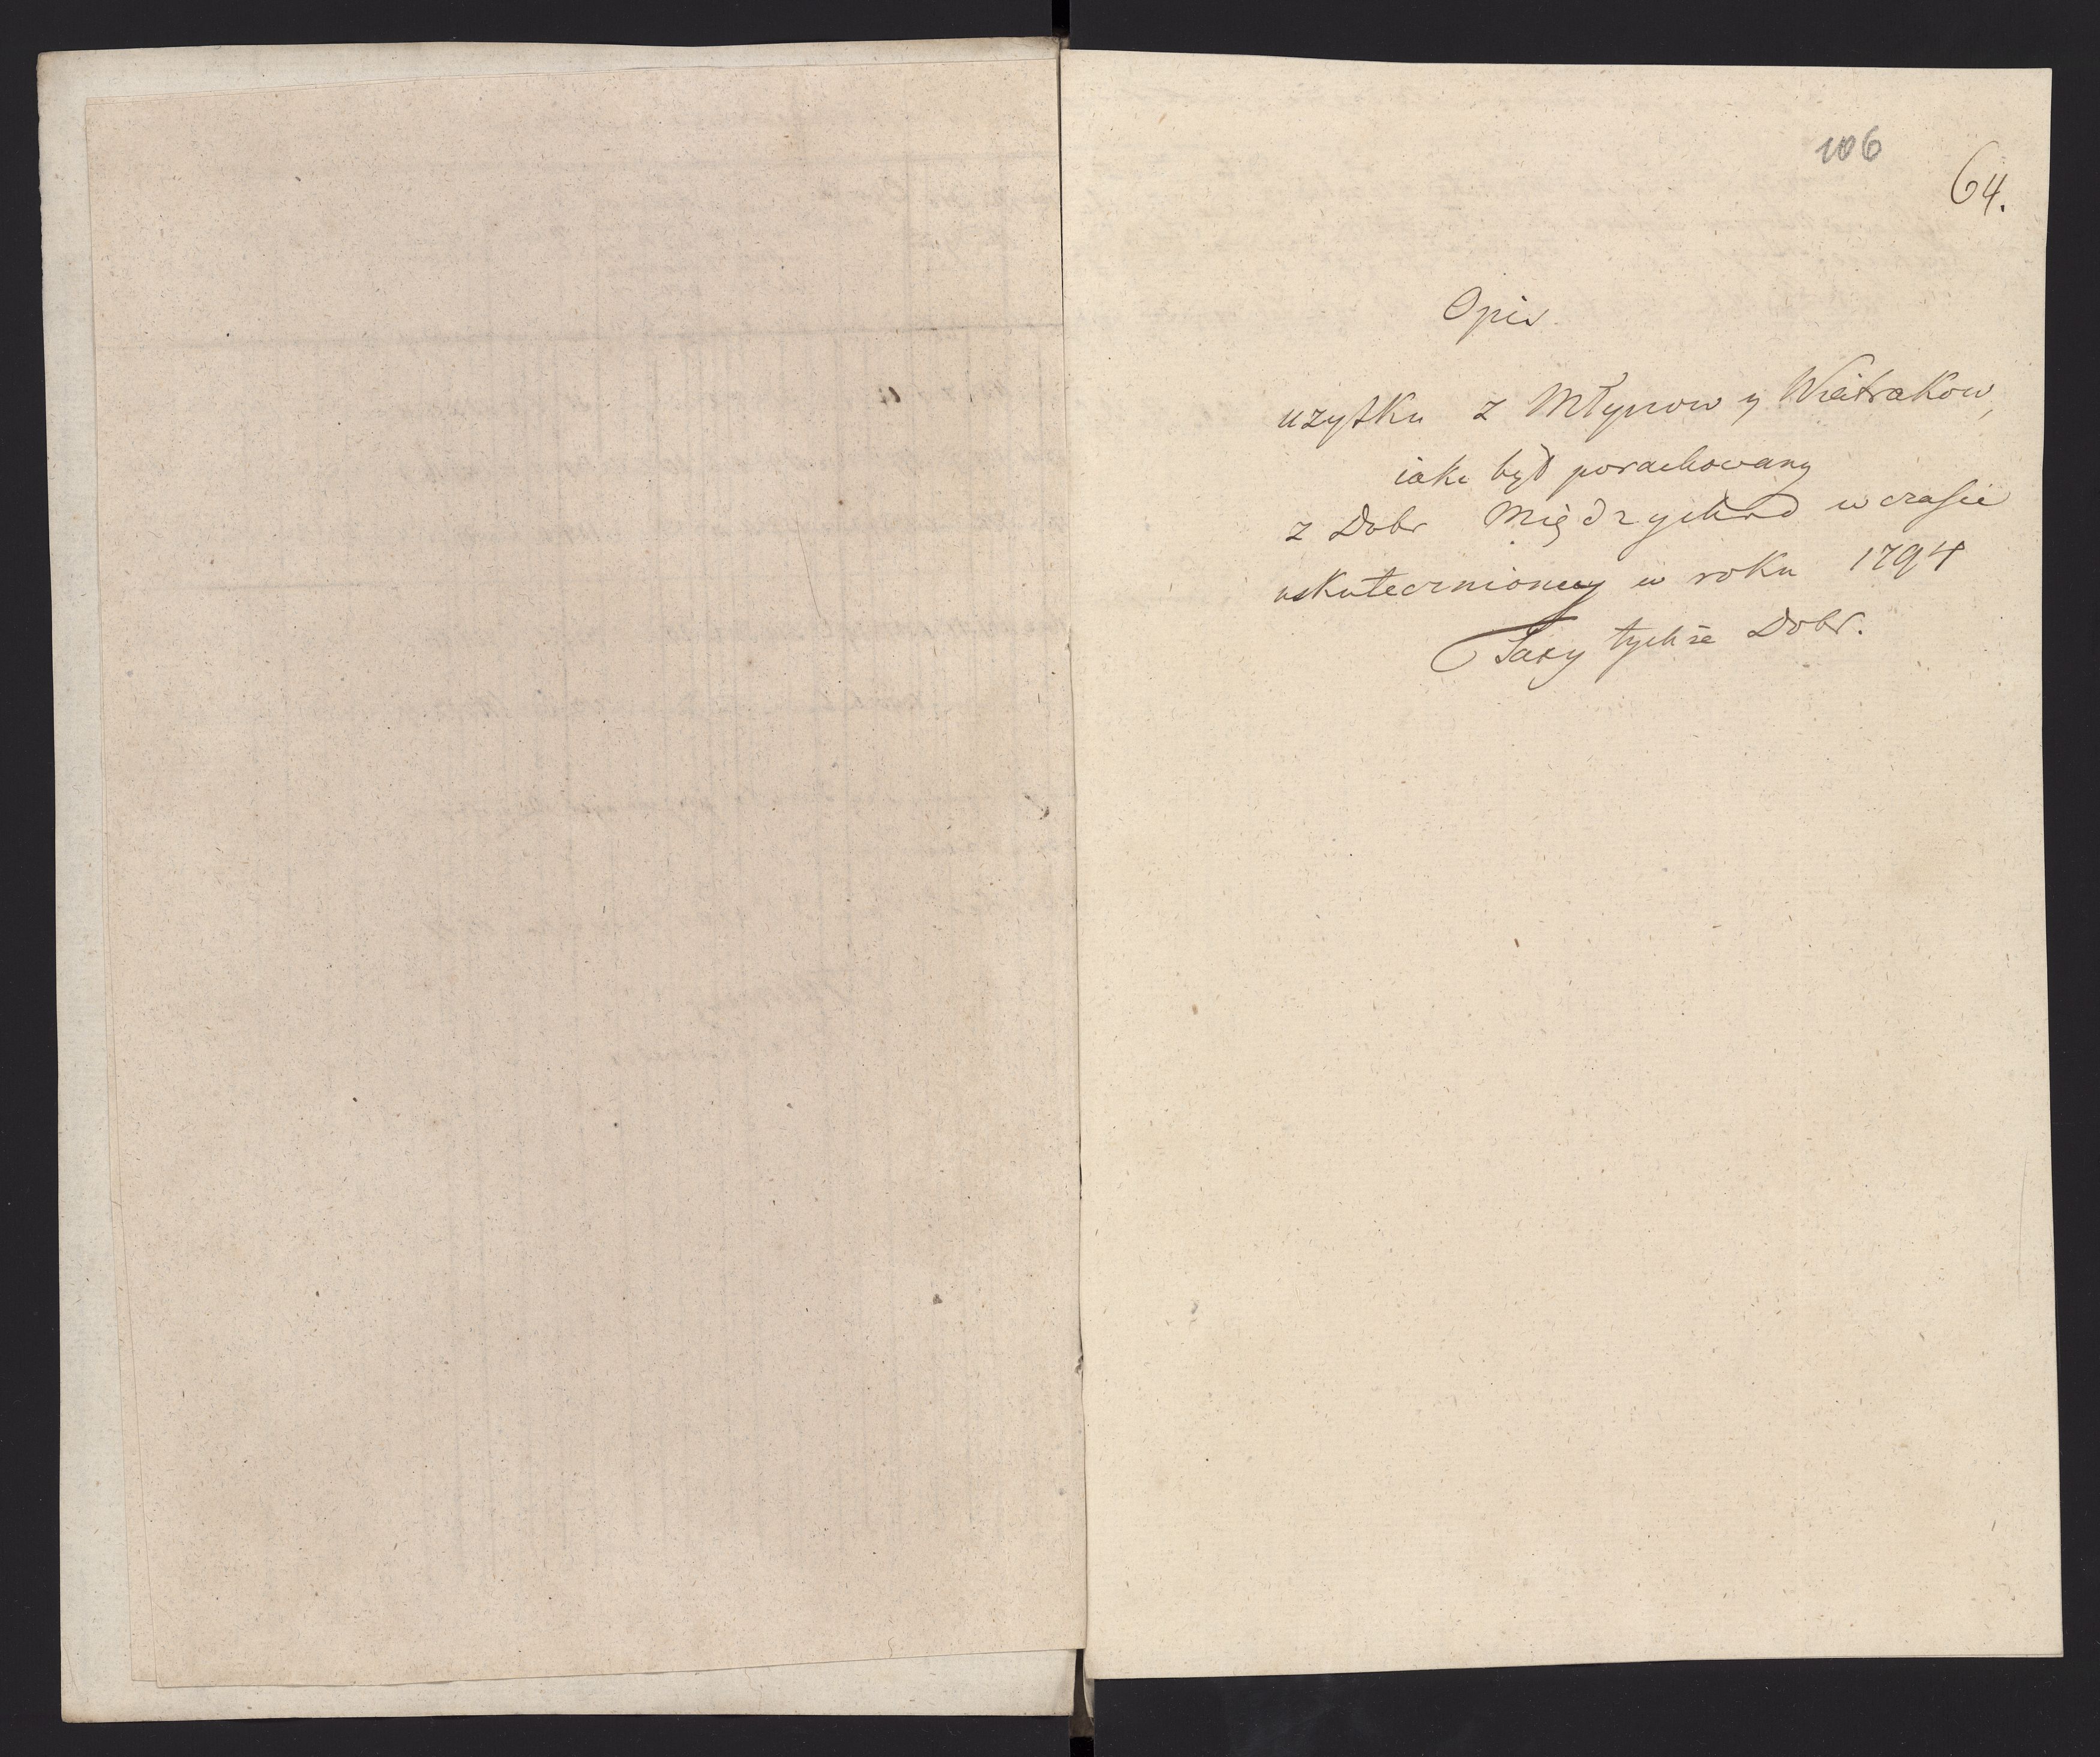 106
64.
Opis
uzytku z Młynow y Wiatrakow,
iaki był porachowany
z Dobr Międzychod w czasie
uskutecznioney w roku 1794
Taxy tychże Dobr.